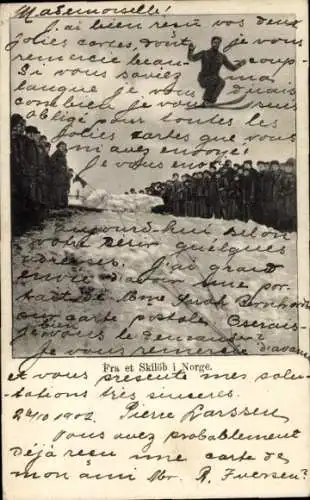 Mademoiselle!
J'ai bien reçu vos deux
jolies cartes, dont je vous
remercie beaucoup-
Si vous saviez ma
langue je vous
combien je vous suis
obligé pour toutes les
jolies cartes que vous
m'avez envoyé!
Je vous envoie
aujourd'hui selon
votre desir quelques
adresses. J'ai grand
envie d'avoir une por-
trait de Mme Sarah Bernhardt
sur carte postale. Oserais-
je vous bien le demander?
Je vous remercie d'avance
Fra et Skilöb i Norge.
et vous presente mes salu-
tations très sinceres.
24/10 1902. Pierre Larssen
Vous avez probablement
déja reçu une carte de
mon ami Mr. R. Iversen?